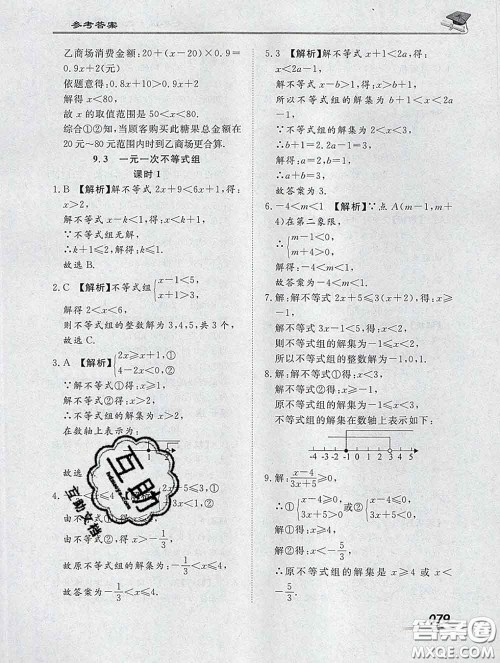 参考答案
乙商场消费金额:20+(x-20)×0.9=
0.9x+2(元)
依题意得:0.8x+10>0.9x+2
解得 x<80,
故 x 的取值范围是 50<x<80.
综合①②知,当顾客购买此糖果总额在
20元~80元范围内时到乙商场更合算.
9.3 一元一次不等式组
课时1
1. B 【解析】解不等式 2x+9<6x+1,得:
x>2,
解不等式 x-k<1,得:x<k+1,
∴k+1≤2,解得:k≤1.
故选 B.
2. C 【解析】不等式组{x-1<5,
x+1>3,
解得 2<x<6,
则不等式组的整数解为 3,4,5,共 3 个.
3. A 【解析】{2x≥x+1,①
4-2x<0,②
解不等式①得:x≥1,
解不等式②得:x>2,
不等式组的解集为 x>2,
在数轴上表示为:
故选
4.
由不等式①,得 x<4,
由不等式②,得 x>-1/3,
故原不等式组的解集为-1/3<x<4.
故答案为-1/3<x<4.
互助
互助文档
5. 3 【解析】解不等式 x+1<2a,得:
x<2a-1,
解不等式 x-b>1,得:x>b+1,
所以不等式组的解集为 2<x<3,
∴b+1=2,2a-1=3,
∴a=2,b=1.
∴a+b=3.
故答案为 3.
6. -4<m<1 【解析】∵点 A(m-1,m+
4)在第二象限,
∴{m-1<0,
m+4>0,
解得:-4<m<1.
故答案为:-4<m<1.
7. 解:解不等式 2x+5≤3(x+2),得:
x≥-1,
所以不等式组的整数解为
8. 解:解不等式①,得:x<3,
解不等式②,得:x≥-1,
原不等式组的解集为-1≤x<3,
不等式组的解集在数轴上表示如下:
-4 -3 -2 -1 0 1 2 3 4 5
9. 解:(x-4)/(3x+5)≥0
∴①{x-4≥0
3x+5>0 或②{x-4≤0
3x+5<0,
解①得:x≥4,
解②得:x<-5/3
∴原不等式组的解集是 x≥4 或 x<
-5/3.
079
答案圈
MXQE.COM